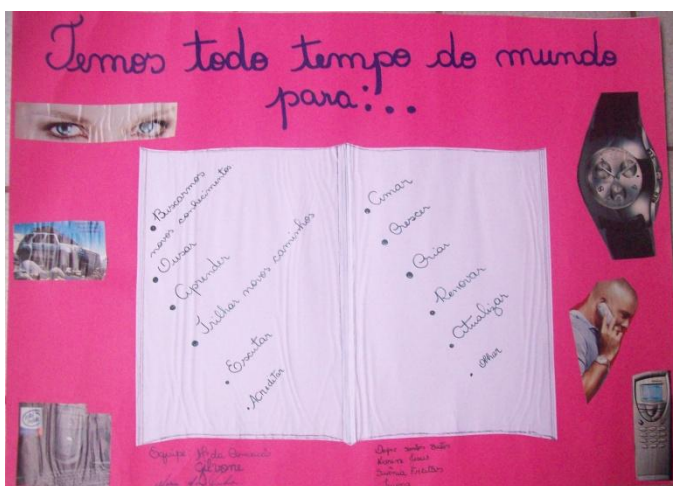 Temos todo tempo do mundo
para:...
• Buscarmos
novos conhecimentos
• Ousar
• Aprender
• Trilhar novos caminhos
• Escutar
• Acreditar
• Amar
• Crescer
• Criar
• Renovar
• Atualizar
• Olhar
Equipe
Gilvone